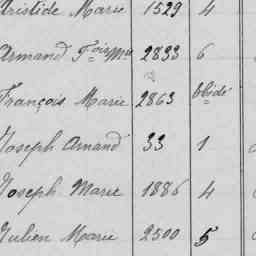 Aristide Marie 1529 4
Armand Fçois Mie 2833 6
François Marie 2863
Joseph Amand 33 1
Joseph Marie 1886 4
Julien Marie 2500 5